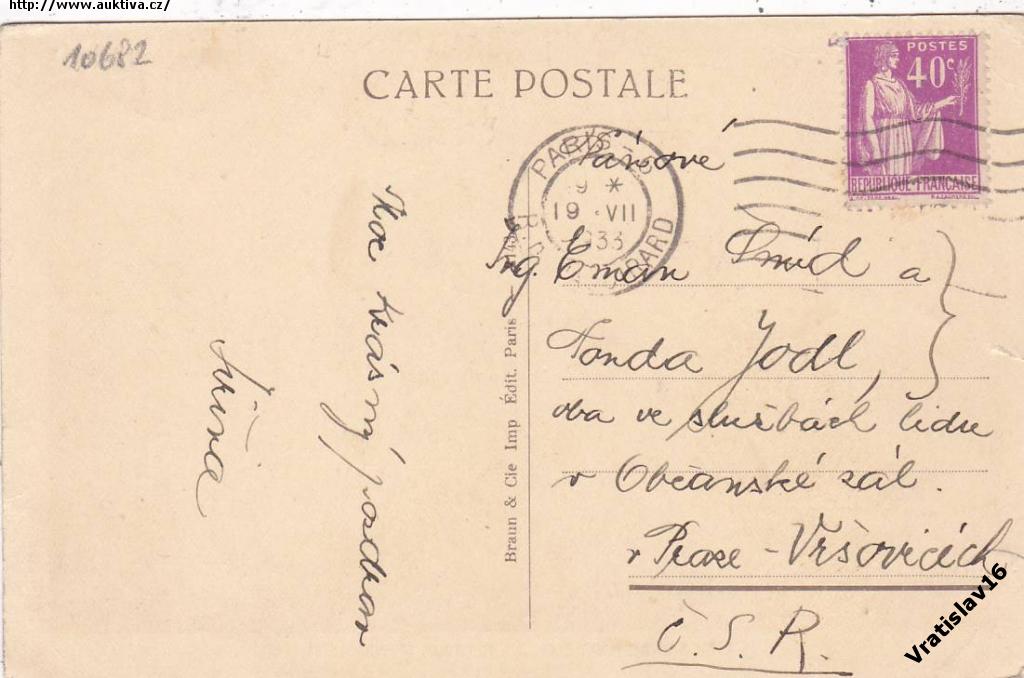 http://www.auktiva.cz/
10682
CARTE POSTALE
POSTES
40c
RÉPUBLIQUE FRANÇAISE
PARIS
19 VII
1933
Pánové
Ing. Eman Šmíd a
Tonda Jodl,
oba ve službách lidu
v Občanské zál.
v Praze - Vršovicích
Č. S. R.
Moc krásný pozdrav
Braun & Cie Imp Édit. Paris
Vratislav16